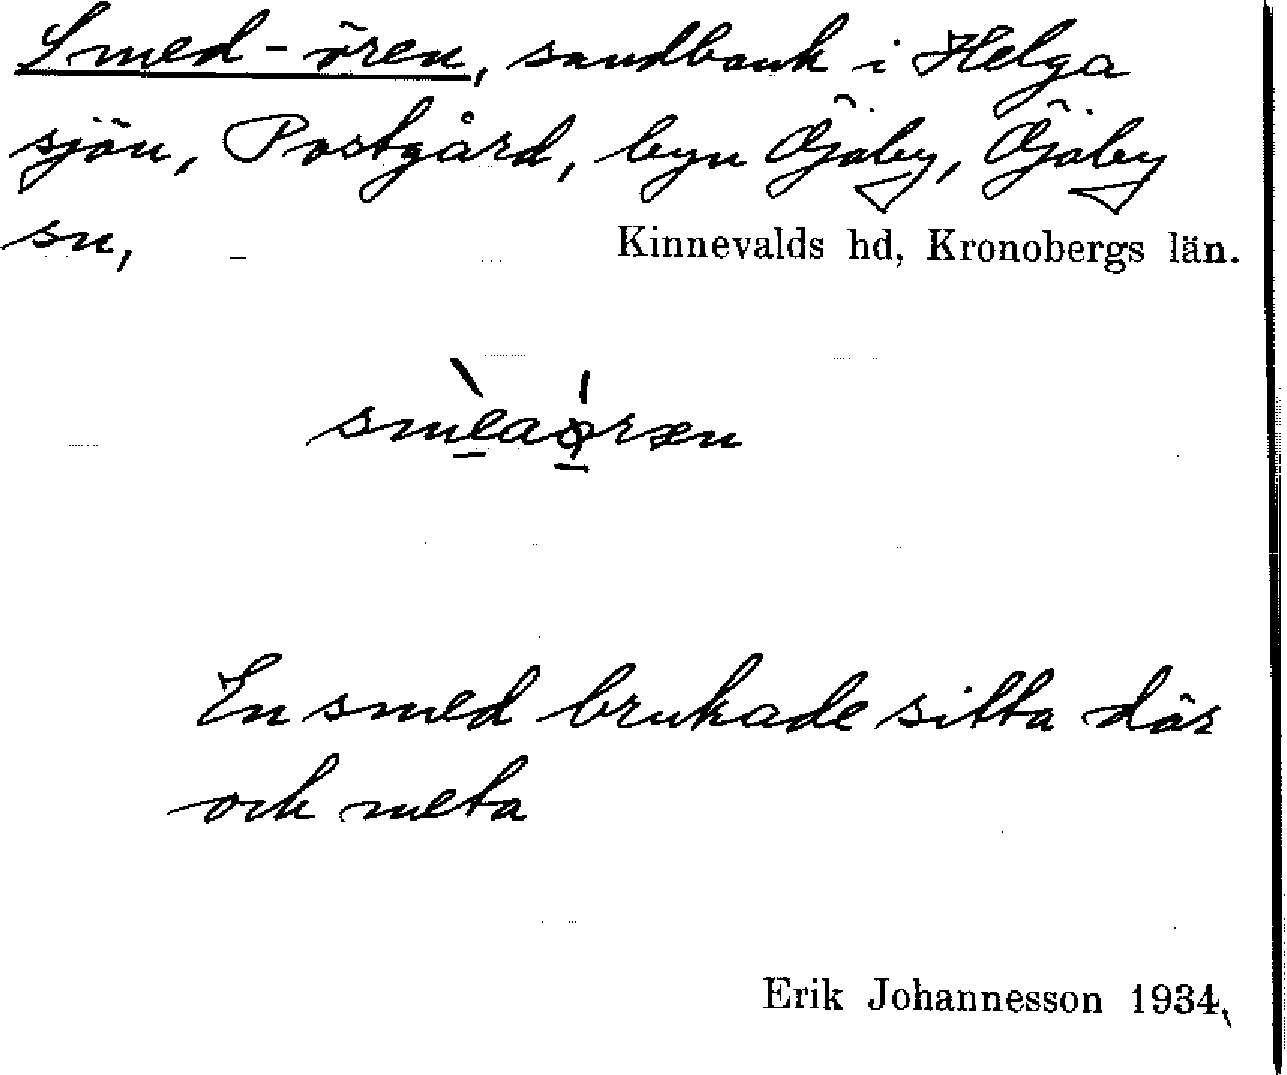 Smed-ören, sandbank i Helga
sjön, Postgård, byn Öjaby, Öjaby
sn,
Kinnevalds hd, Kronobergs län.
smèaǿræn
En smed brukade sitta där
och meta
Erik Johannesson 1934,